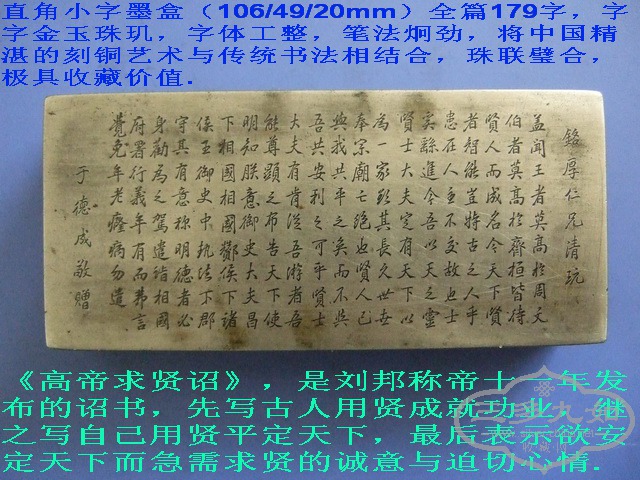 直角小字墨盒（106/49/20mm）全篇179字，字
字金玉珠玑，字体工整，笔法炯劲，将中国精
湛的刻铜艺术与传统书法相结合，珠联璧合，
极具收藏价值.
銘厚仁兄清玩
蓋聞王者莫高於周文
伯者莫高於齊桓皆待
賢人而成名今天下賢
者智能豈特古之人乎
患在人主不交故也士
奚繇進今吾以天之靈
賢士大夫定有天下以
為一家欲其長久世世
奉宗廟亡絕也賢人已
與我共平之矣而不與
吾共安利之可乎賢士
大夫有肯從吾游者吾
能尊顯之布告天下使
明知朕意御史大夫昌
下相國相國酇侯下諸
侯王御史中執法下郡
守其有意稱明德者必
身勸為之駕遣詣相國
府署行義年有而弗言
覺免年老癃病勿遣
于德成敬贈
《高帝求贤诏》，是刘邦称帝十一年发
布的诏书，先写古人用贤成就功业，继
之写自己用贤平定天下，最后表示欲安
定天下而急需求贤的诚意与迫切心情.